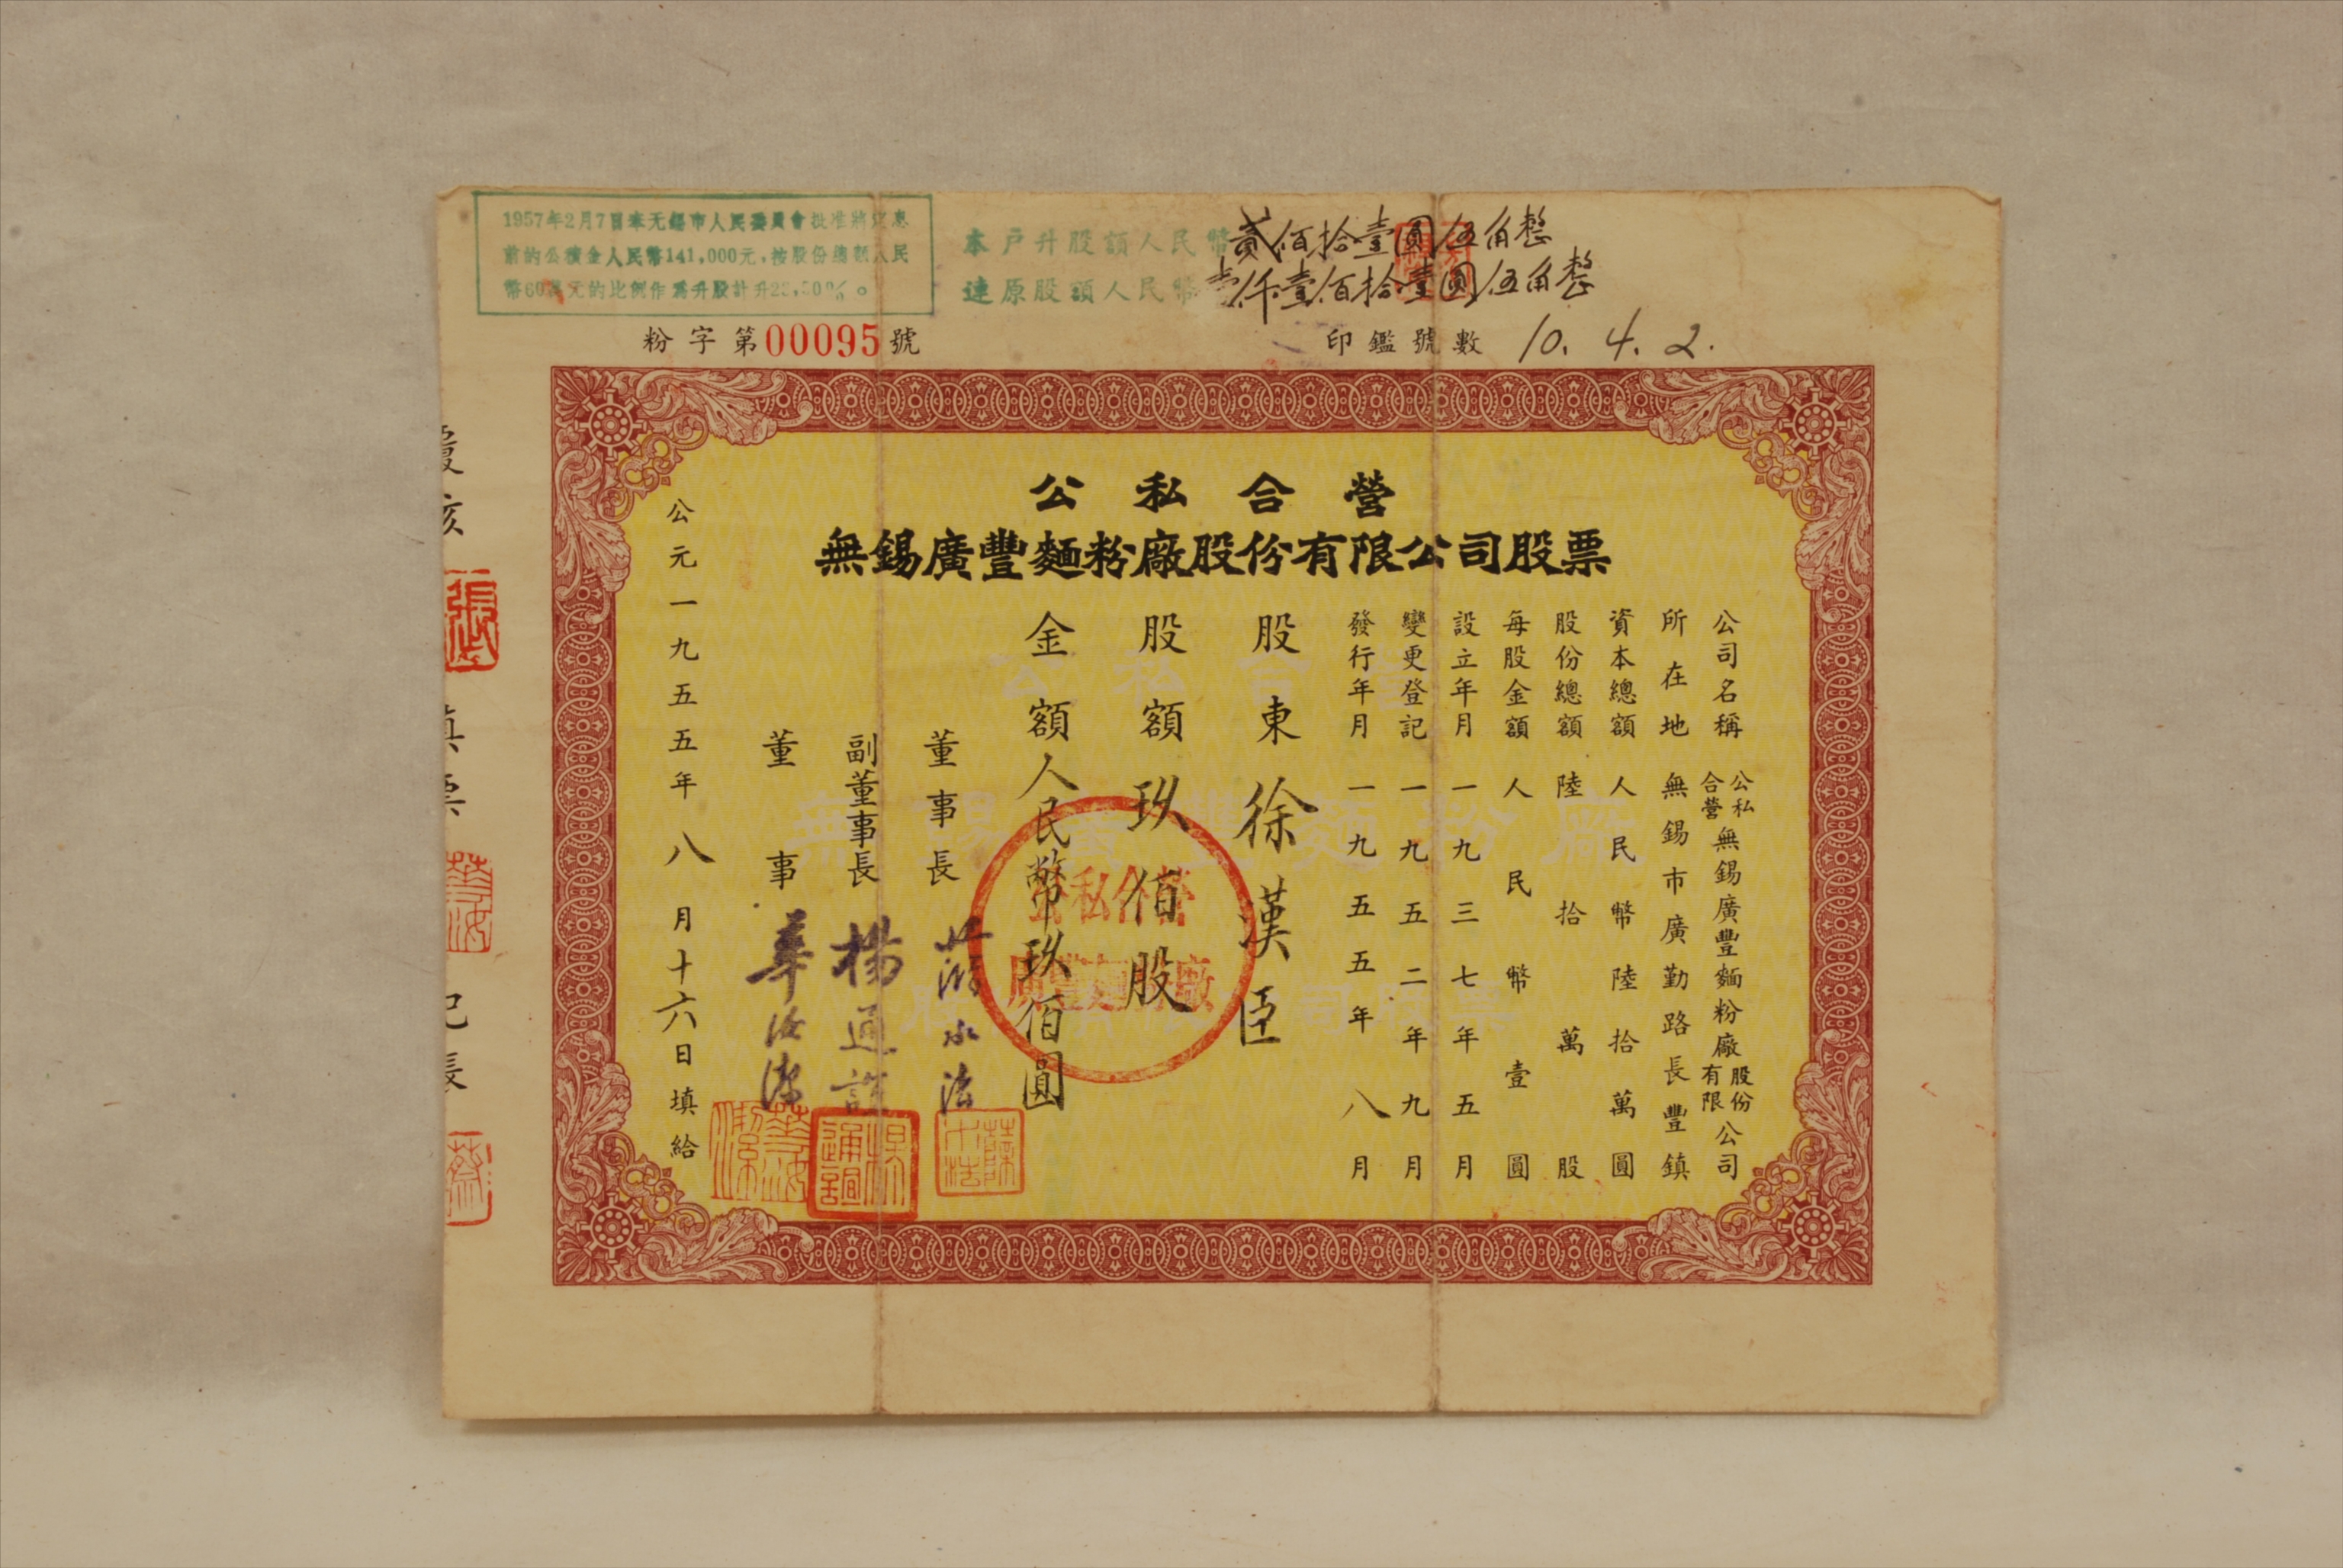 1957年2月7日奉无錫市人民委員會批准將定息
前的公積金人民幣141,000元,按股份總額人民
幣60萬元的比例作爲升股計升23.50%。
本戶升股額人民幣貳佰拾壹圓伍角整
連原股額人民幣壹仟壹佰拾壹圓伍角整
粉字第00095號
印鑑號數 10.4.2.
公私合營
無錫廣豐麵粉廠股份有限公司股票
公司名稱 公私合營無錫廣豐麵粉廠股份有限公司
所在地 無錫市廣勤路長豐鎮
資本總額 人民幣陸拾萬圓
股份總額 陸拾萬股
每股金額 人民幣壹圓
設立年月 一九三七年五月
變更登記 一九五二年九月
發行年月 一九五五年八月
股東 徐漢臣
股額 玖佰股
金額 人民幣玖佰圓
董事長
副董事長 楊通誼
董事 華汝潔
公元一九五五年八月十六日填給
公私合營
廣豐麵粉廠
覆核 張
填票 華
記長 蔡